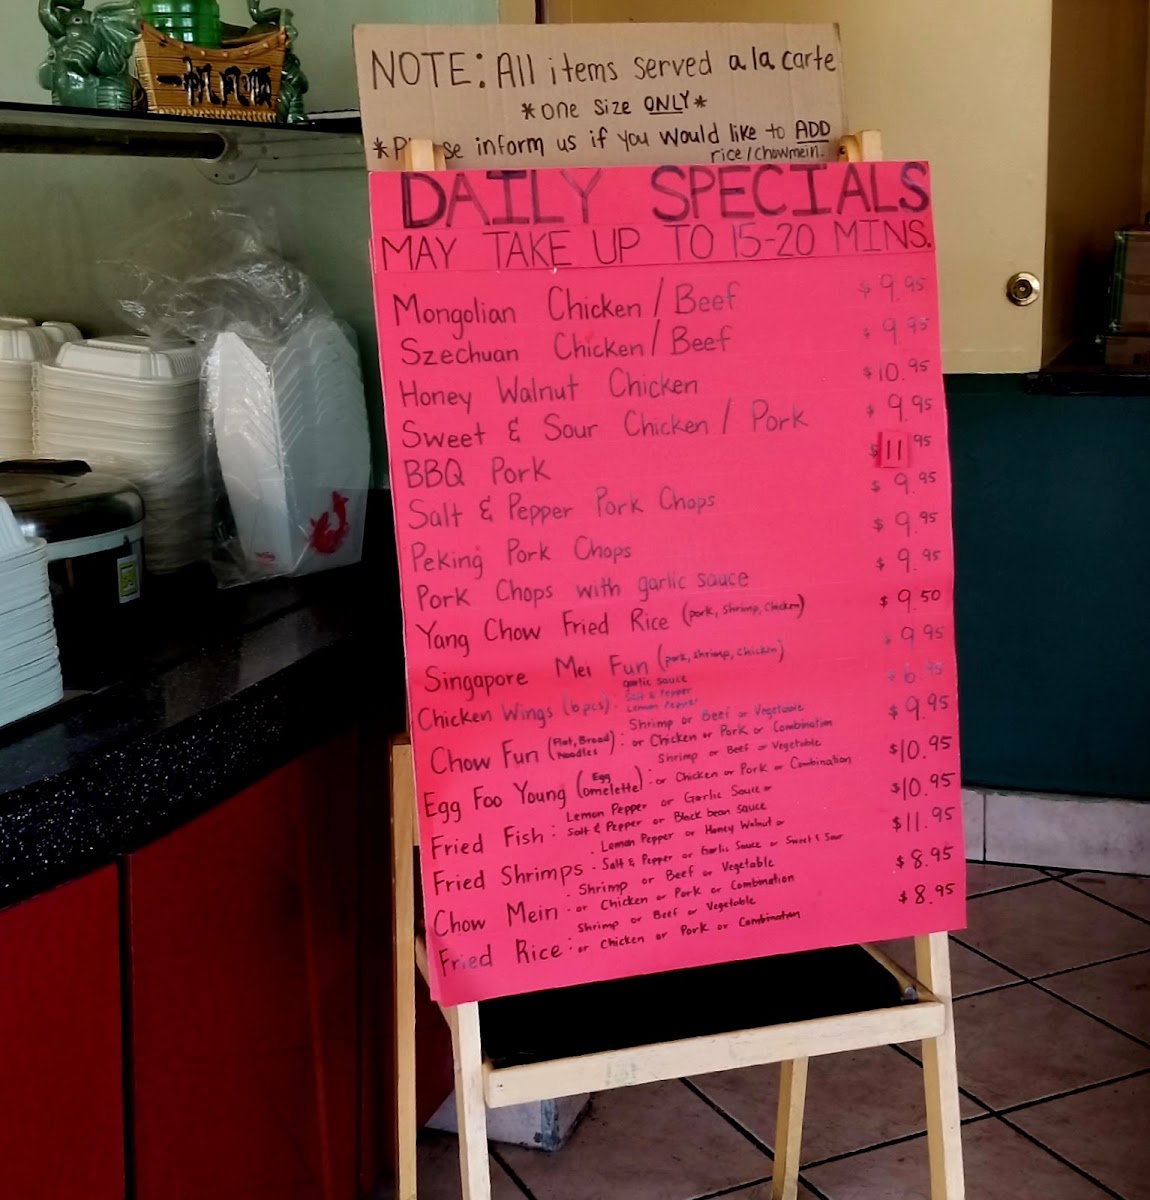 一帆風順
NOTE: All items served a la carte
*one size ONLY*
*P se inform us if you would like to ADD
rice/chowmein.
DAILY SPECIALS
MAY TAKE UP TO 15-20 MINS.
Mongolian Chicken / Beef $9.95
Szechuan Chicken / Beef $9.95
Honey Walnut Chicken $10.95
Sweet & Sour Chicken / Pork $9.95
BBQ Pork $11.95
Salt & Pepper Pork Chops $9.95
Peking Pork Chops $9.95
Pork Chops with garlic sauce $9.95
Yang Chow Fried Rice (pork, shrimp, chicken) $9.50
Singapore Mei Fun (pork, shrimp, chicken) $9.95
garlic sauce
Salt & Pepper
Chicken Wings (6pcs): Lemon Pepper $6.95
Shrimp or Beef or Vegetable
Chow Fun (Flat, Broad Noodles): or Chicken or Pork or Combination $9.95
Shrimp or Beef or Vegetable
Egg Foo Young (Egg omelette): or Chicken or Pork or Combination $10.95
Lemon Pepper or Garlic Sauce or
Fried Fish: Salt & Pepper or Black bean sauce $10.95
Lemon Pepper or Honey Walnut or
Fried Shrimps: Salt & Pepper or Garlic Sauce or Sweet & Sour $11.95
Shrimp or Beef or Vegetable
Chow Mein: or Chicken or Pork or Combination $8.95
Shrimp or Beef or Vegetable
Fried Rice: or Chicken or Pork or Combination $8.95